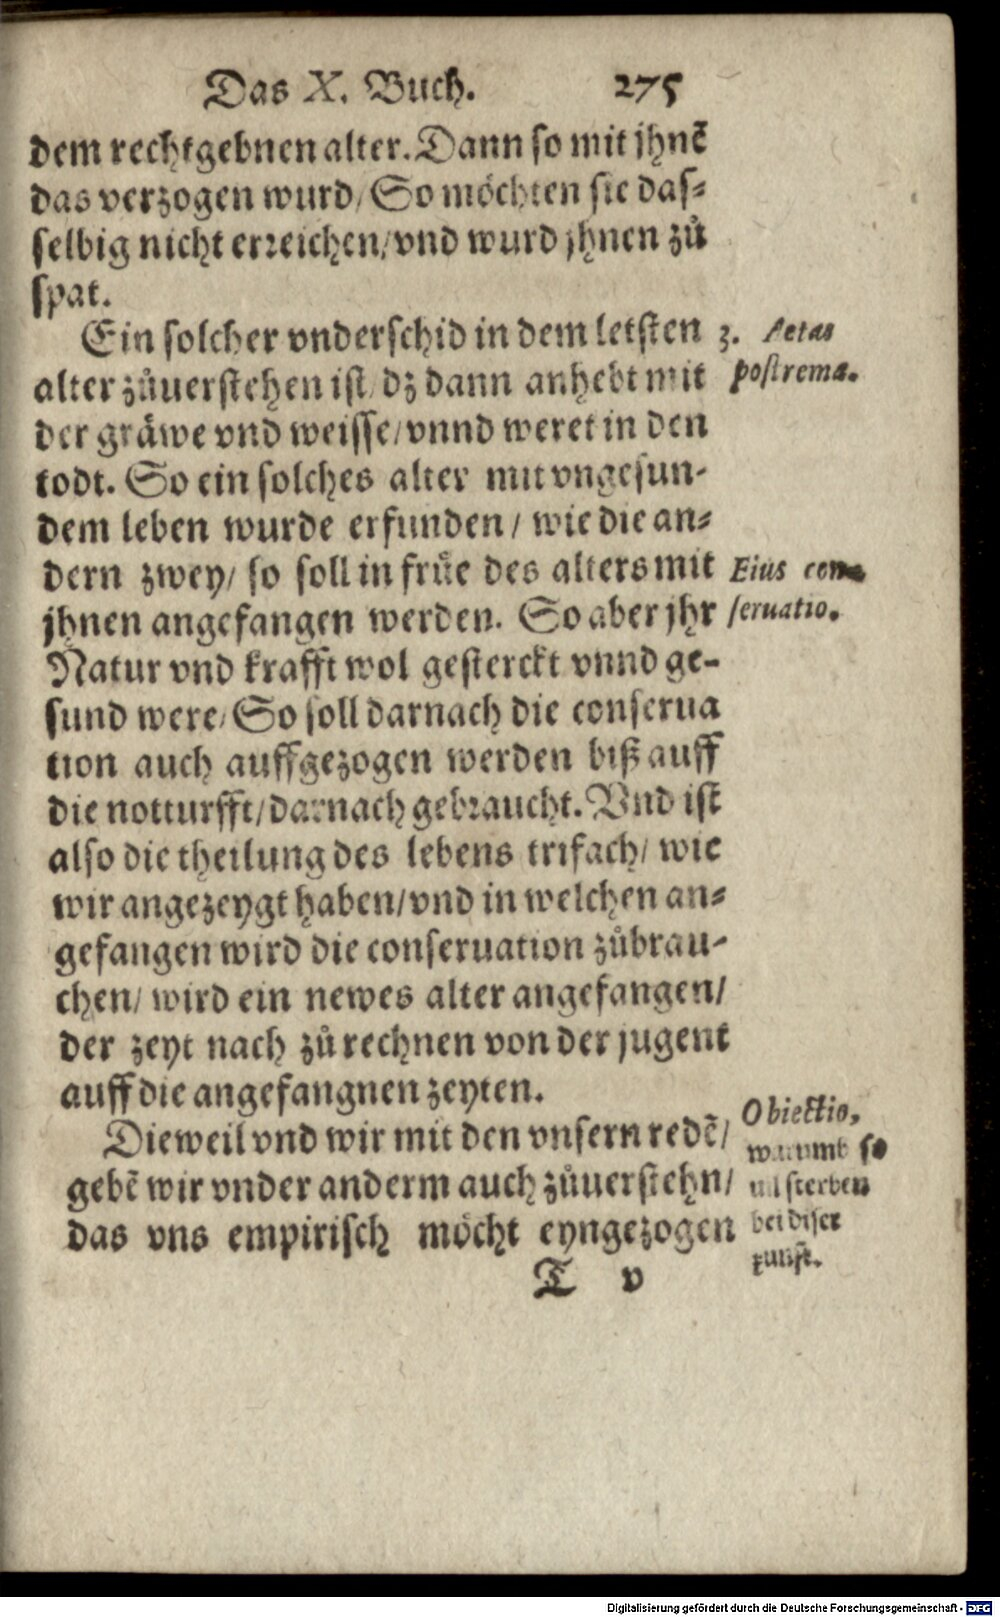 Das X. Buch. 275
dem rechtgebnen alter. Dann so mit jhnẽ
das verzogen wurd / So möchten sie das⸗
selbig nicht erreichen / vnd wurd jhnen zů
spat.
Ein solcher vnderschid in dem letsten
3. Aetas
alter zůuerstehen ist / dz dann anhebt mit
postrema.
der gräwe vnd weisse / vnnd weret in den
todt. So ein solches alter mit vngesun⸗
dem leben wurde erfunden / wie die an⸗
dern zwey / so soll in frůe des alters mit
Eius con⸗
jhnen angefangen werden. So aber jhr
seruatio.
Natur vnd krafft wol gesterckt vnnd ge⸗
sund were / So soll darnach die conserua
tion auch auffgezogen werden biß auff
die notturfft / darnach gebraucht. Vnd ist
also die theilung des lebens trifach / wie
wir angezeygt haben / vnd in welchen an⸗
gefangen wird die conseruation zůbrau⸗
chen / wird ein newes alter angefangen /
der zeyt nach zů rechnen von der jugent
auff die angefangnen zeyten.
Obiectio,
Dieweil vnd wir mit den vnsern redẽ /
warumb so
gebẽ wir vnder anderm auch zůuerstehn /
uil sterben
das vns empirisch möcht eyngezogen
bei diser
kunst.
T v
Digitalisierung gefördert durch die Deutsche Forschungsgemeinschaft - DFG